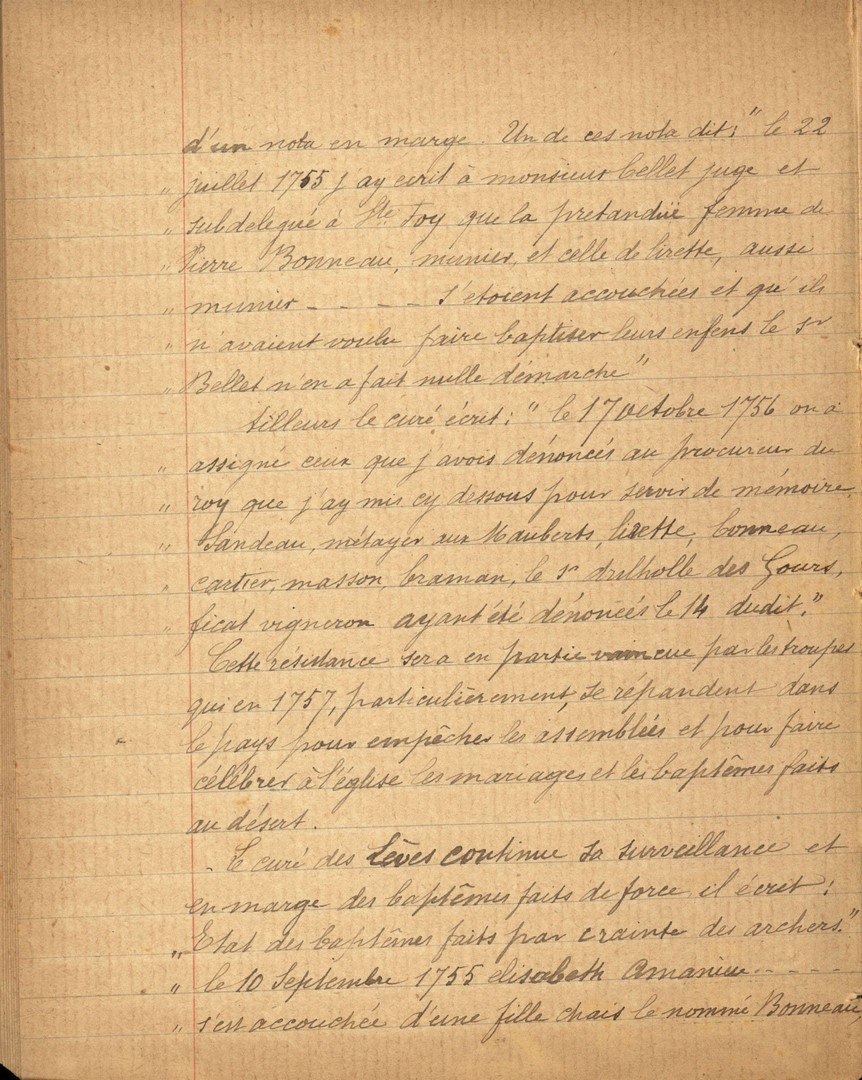 d'un nota en marge. Un de ces nota dit: "le 22
" juillet 1755 j'ay ecrit à monsieur bellet juge et
" subdelegué à Ste Foy que la pretandüe femme de
" Pierre Bonneau, munier, et celle de lirette, aussi
" munier _ _ _ _ _ s'etoient accouchées et qu'ils
" n'avaient voulu faire baptiser leurs enfens le sr
" Bellet n'en a fait nulle démarche"
tilleurs le curé écrit: "le 17 octobre 1756 on a
" assigné ceux que j'avois dénoncés au procureur du
" roy que j'ay mis cy dessous pour servir de mémoire.
" Landeau, métayer aux Mauberts, lisette, bonneau,
" cartier, masson, braman, le sr drilholle des Gours,
" ficat vigneron ayant été dénoncés le 14 dudit."
Cette résistance sera en partie vaincue par les troupes
qui en 1757, particulièrement, se répandent dans
le pays pour empêcher les assemblées et pour faire
célébrer à l'église les mariages et les baptêmes faits
au désert.
- C curé des Lèves continue sa surveillance et
en marge des baptêmes faits de force il écrit:
" Etat des baptêmes faits par crainte des archers."
" le 10 Septembre 1755 elisabeth Amanieu _ _ _ _
" s'est accouchée d'une fille chais le nommé Bonneau,